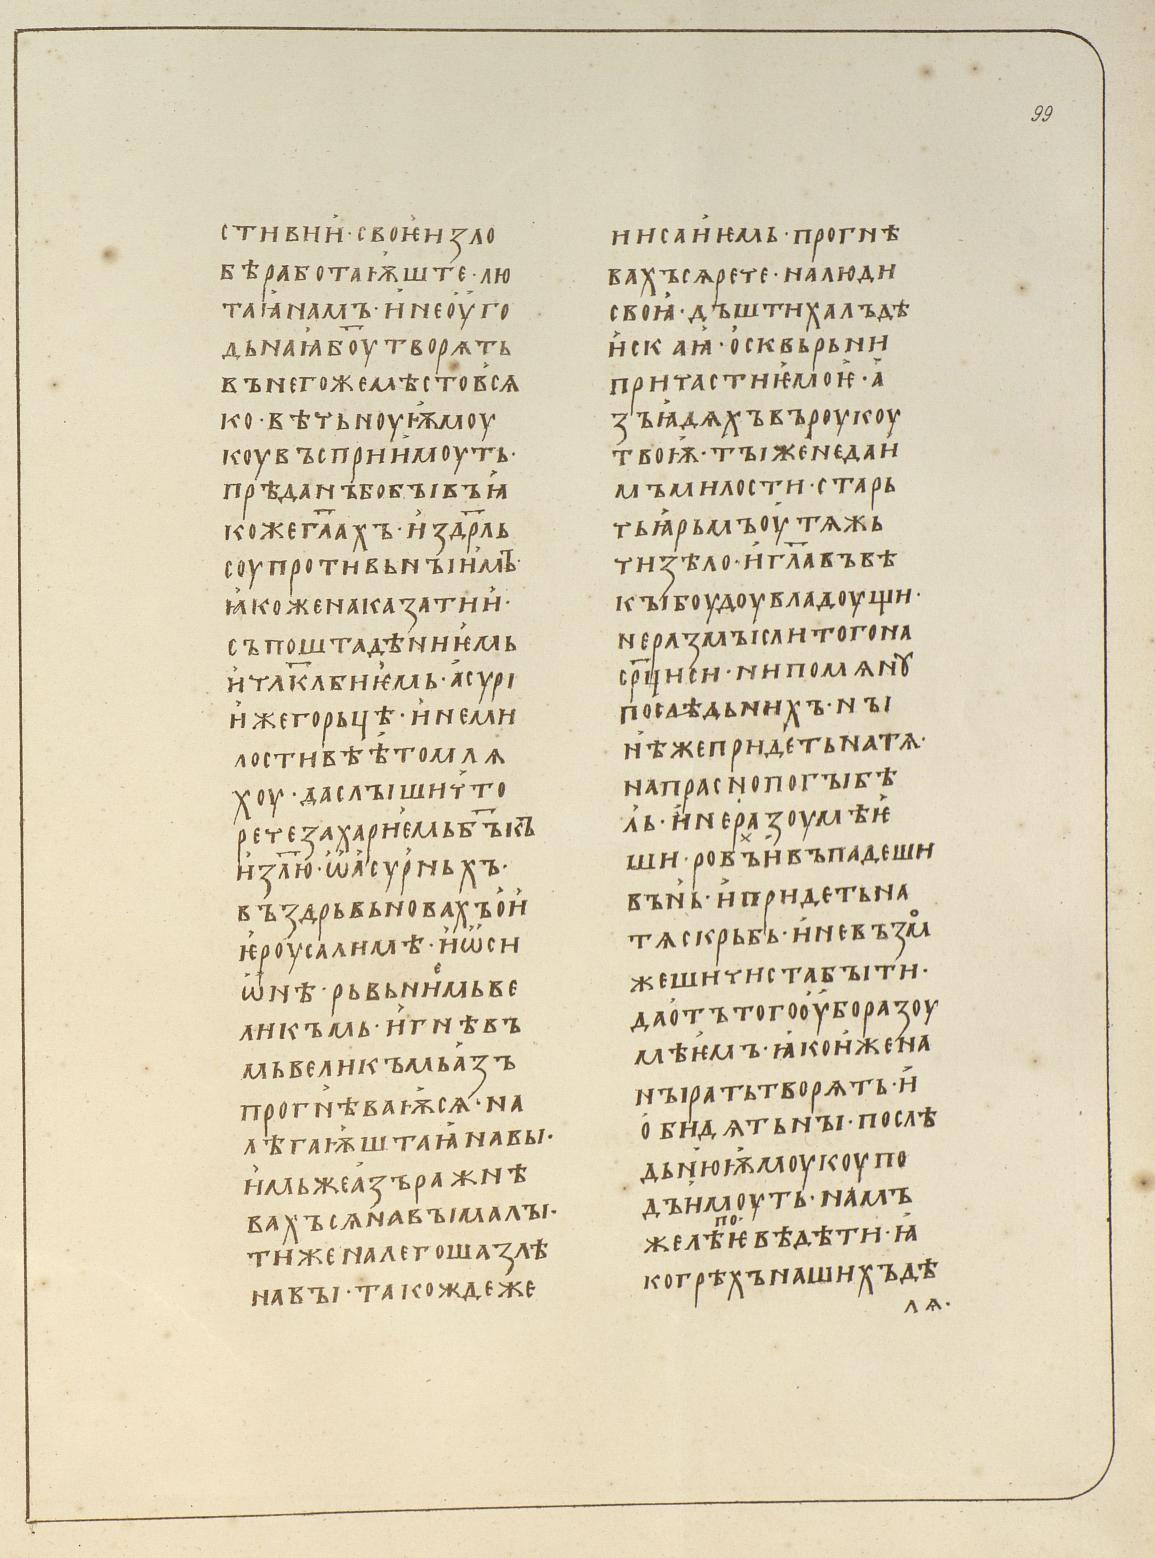 99
стивии·своѥизло
бѣработаѭште·лю
таꙗнамъ·инеоуго
дьнаꙗбо҃утворѧть
въне гожемѣстовсѧ
ко·вѣчьноуѭмоу
коувъсприимоуть·
прѣданъбобывъꙗ
кожегл҃аахъ·издр҃ль
соупротивьнъıимъ·
ꙗкоженаказатии·
съпоштадѣниѥмь
ичл҃клбиѥмь·асурı
ижегорьцѣ·инеми
лостивѣѥтомлѧ
хоу·даслъıшичто
речезахариѥмьб҃ъкъ
изл҃ю·ѿасурньхъ·
въздрьвьновахъои
ѥроусалимѣ·иѿси
ѿнѣ·рьвьниемьве
ликъмь·игнѣвъ
мьвеликъмьазъ
прогнѣваѭсѧ·на
лѣгаѭштаꙗнавы·
имьжеазъражнѣ
вахъсѧнавъıмалъı·
тиженалегошазлѣ
навъı·такождеже
иисаиѥмь·прогнѣ
вахъсѧрече·налюди
своꙗ·дъштихалъдѣ
искаꙗ·осквьрьни
причастиѥмоѥ·а
зъıадѧхъвъроукоу
твоѭ·тъıженедаи
мъмилости·старь
чьꙗрьмъоутѧжь
чизѣло·игл҃авъвѣ
къıбоудоувладоущи·
неразмъıслитогона
ср҃циси·нипомѧноу
послѣдьнихъ·нъı
нѣжепридетьнатѧ·
напраснопогъıбѣ
ль·инеразоумѣѥ
ши·ровъивъпадеши
вънь·ипридетьна
тѧскрьбь·иневъзмо
жешичистабъıти·
даотътогооуборазоу
мѣѥмъ·ꙗкоижена
нъıратьтворѧть·и
обидѧтьнъı·послѣ
дьнюѭмоукоупо
дъимоуть·намъ
желѣѥповѣдѣти·ꙗ
когрѣхънашихъдѣ
лѧ·